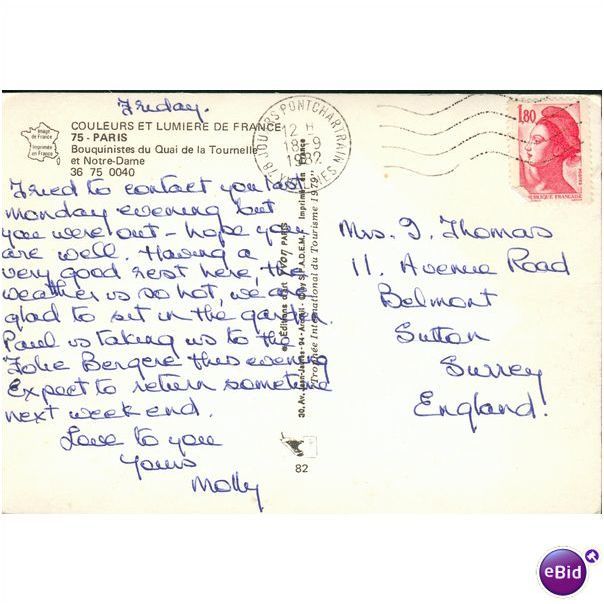 Friday.
COULEURS ET LUMIERE DE FRANCE
75 - PARIS
Bouquinistes du Quai de la Tournelle
et Notre-Dame
36 75 0040
Image
de France
Imprimée
en France
Tried to contact you last
monday evening but
you were out - hope you
are well. Having a
very good rest here, the
weather is so hot, we are
glad to sit in the garden.
Paul is taking us to the
Folie Bergere this evening
Expect to return sometime
next week end.
Love to you
Yours
Molly
78 JOUARS PONTCHARTRAIN
12 H
18-9
1982
YVELINES
1,80
REPUBLIQUE FRANÇAISE
Editions d'art YVON PARIS
30, Av. Jean-Jaurès - 94 - Arcueil - Imprimé en France
"Trophée International du Tourisme 1979"
82
Mrs. J. Thomas
11. Avenue Road
Belmont
Sutton
Surrey
England!
eBid